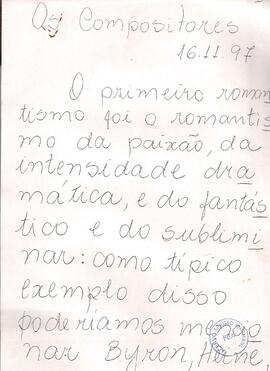 Os Compositores
16.11.97
O primeiro roman
tismo foi o romantis
mo da paixão, da
intensidade dra
mática, e do fantás
tico e do sublimi
nar: como típico
exemplo disso
poderíamos mencio
nar Byron, Heine,